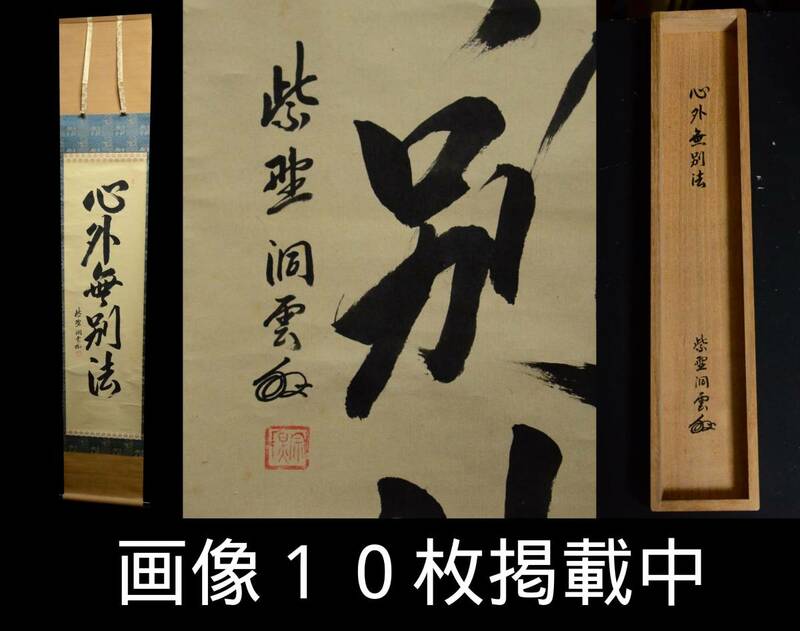 心外無別法
紫野洞雲
紫野洞雲
別
心外無別法
紫野洞雲
画像１０枚掲載中